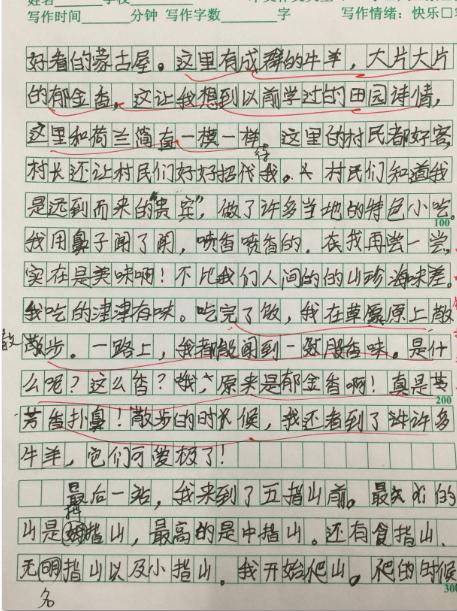 姓名 学校
写作时间 分钟 写作字数 字 写作情绪：快乐□
好看的蒙古屋。这里有成群的牛羊，大片大片
的郁金香，这让我想到以前学过的田园诗情，
这里和荷兰简直一模一样 这里的村民都好客，
村长还让村民们好好招代我。村民们知道我
是远到而来的“贵宾”，做了许多当地的特色小吃。
100
我用鼻子闻了闻，喷香喷香的．在我再尝一尝，
实在是美味啊！不比我们人间的的山珍海味差。
我吃的津津有味。吃完了饭，我在草原上散
散步。一路上，我都能闻到一股香味。是什
么呢？这么香？哦，原来是郁金香啊！真是芳
200
芳香扑鼻！散步的时候，我还看到了许多
牛羊，它们可爱极了！
最后一站，我来到了五指山前。最矢的
山是拇指山，最高的是中指山。还有食指山．
无名指山以及小指山。我开始爬山。爬的时候
300